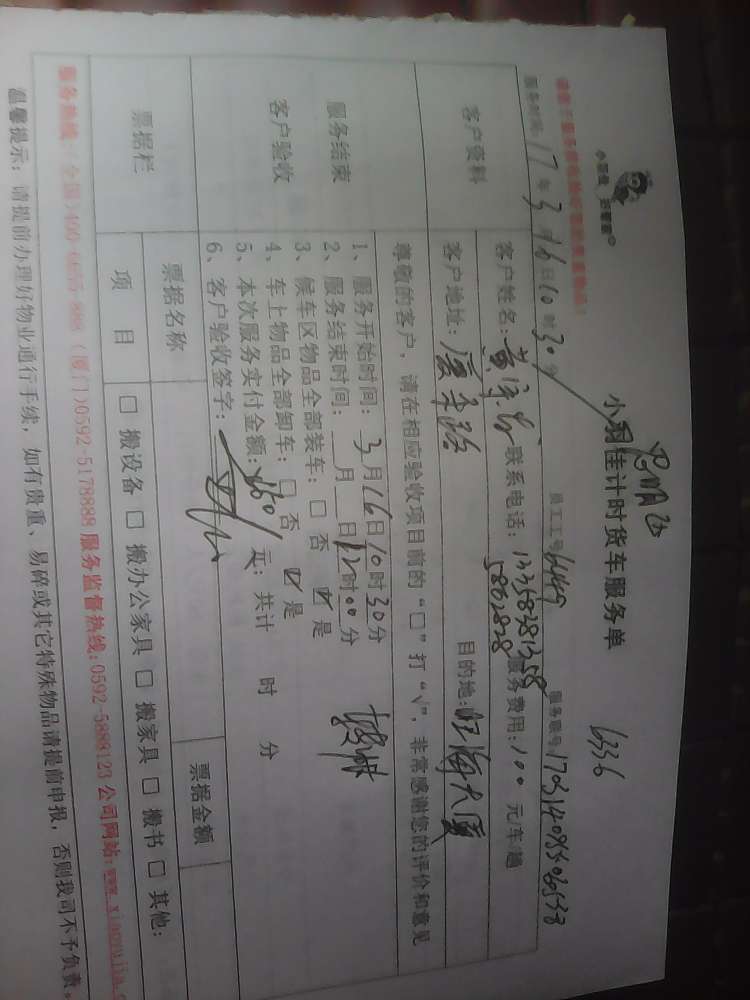 小羽佳 好管家
小羽佳计时货车服务单
6336
服务时间: 17年3月16日10时30分
员工工号: 6449
客户资料
客户姓名:
联系电话: 13358281358
5862828
服务费用: 100 元/车趟
客户地址:
目的地:
大厦
尊敬的客户, 请在相应验收项目前的“□”打“√”, 非常感谢您的评价和意见
服务结束
客户验收
1、服务开始时间: 3月16日10时30分
2、服务结束时间: 月 日12时00分
3、候车区物品全部装车: □ 否 ☑ 是
4、车上物品全部卸车: □ 否 ☑ 是
5、本次服务实付金额: 元; 共计 时 分
6、客户验收签字:
票据栏
票据名称
票据金额
项 目
□ 搬设备 □ 搬办公家具 □ 搬家具 □ 搬书 □ 其他:
服务热线: (全国)400-6695-888 (厦门)0592-5178888 服务监督热线:0592-5889123 公司网站:www.xiaoyujia.c
温馨提示: 请提前办理好物业通行手续, 如有贵重、易碎或其它特殊物品请提前申报, 否则我司不予负责。